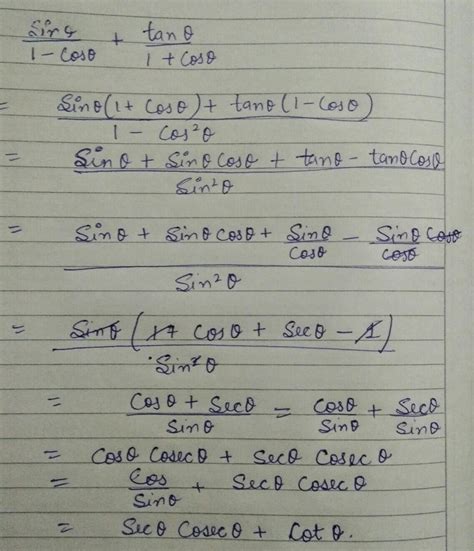 sinθ/(1 - cosθ) + tanθ/(1 + cosθ)
= (sinθ(1 + cosθ) + tanθ(1 - cosθ))/(1 - cos²θ)
= (sinθ + sinθ cosθ + tanθ - tanθcosθ)/sin²θ
= (sinθ + sinθ cosθ + sinθ/cosθ - sinθ cosθ/cosθ)/sin²θ
= sinθ(1+ cosθ + secθ - 1)/sin²θ
= (cosθ + secθ)/sinθ = cosθ/sinθ + secθ/sinθ
= cosθ cosecθ + secθ cosec θ
= cos/sinθ + secθ cosecθ
= secθ cosecθ + cotθ.